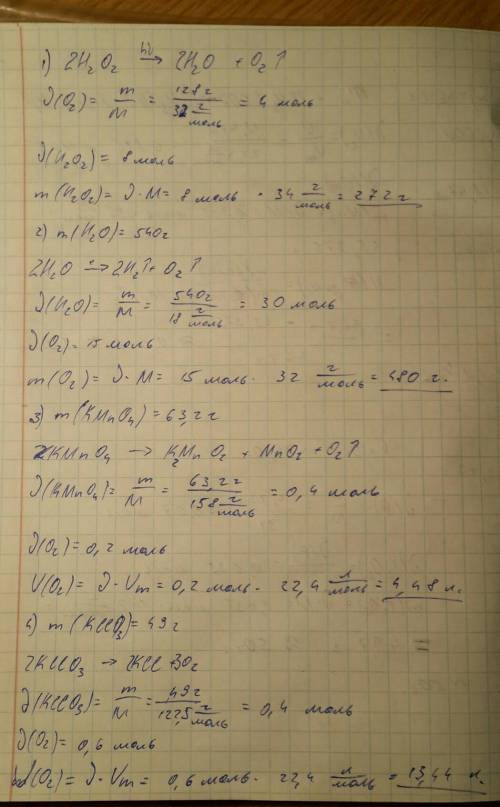 1) 2H₂O₂ —hν→ 2H₂O + O₂↑
ν(O₂) = m/M = 128 г / 32 г/моль = 4 моль
ν(H₂O₂) = 8 моль
m(H₂O₂) = ν · M = 8 моль · 34 г/моль = 272 г
2) m(H₂O) = 540 г
2H₂O → 2H₂↑ + O₂↑
ν(H₂O) = m/M = 540 г / 18 г/моль = 30 моль
ν(O₂) = 15 моль
m(O₂) = ν · M = 15 моль · 32 г/моль = 480 г.
3) m(KMnO₄) = 63,2 г
2KMnO₄ → K₂MnO₂ + MnO₂ + O₂↑
ν(KMnO₄) = m/M = 63,2 г / 158 г/моль = 0,4 моль
ν(O₂) = 0,2 моль
V(O₂) = ν · Vm = 0,2 моль · 22,4 л/моль = 4,48 л.
4) m(KClO₃) = 49 г
2KClO₃ → 2KCl + 3O₂
ν(KClO₃) = m/M = 49 г / 122,5 г/моль = 0,4 моль
ν(O₂) = 0,6 моль
V(O₂) = ν · Vm = 0,6 моль · 22,4 л/моль = 13,44 л.